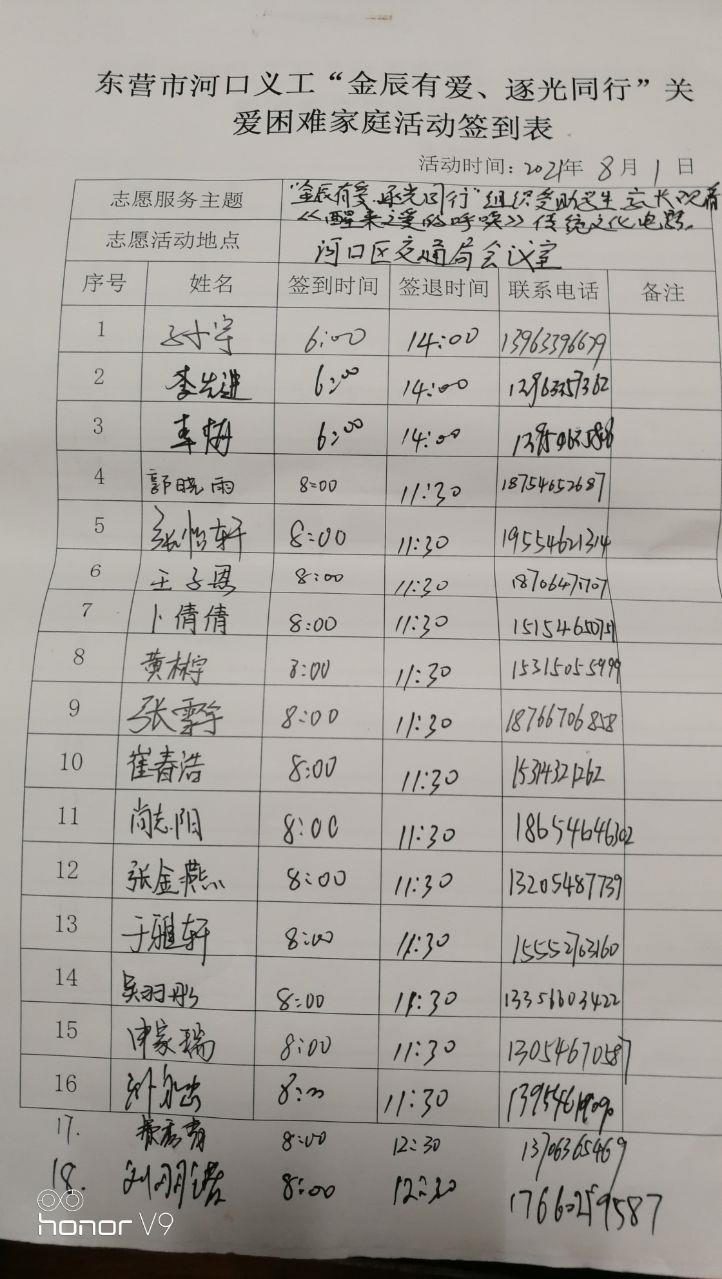 东营市河口义工“金辰有爱、逐光同行”关
爱困难家庭活动签到表
活动时间：2021年 8月 1日
志愿服务主题 “金辰有爱·逐光同行”组织受助学生家长观看
《醒来之爱的呼唤》传统文化电影。
志愿活动地点 河口区交通局会议室
序号 姓名 签到时间 签退时间 联系电话 备注
1 6:00 14:00
2 李先进 6:00 14:00
3 6:00 14:00
4 郭晓雨 8:00 11:30 18754652687
5 张怡轩 8:00 11:30 19554621314
6 王子恩 8:00 11:30
7 卜倩倩 8:00 11:30
8 黄彬宇 8:00 11:30 15315055999
9 8:00 11:30 18766706858
10 崔春浩 8:00 11:30 15314321262
11 尚志阳 8:00 11:30 18654646302
12 张金燕 8:00 11:30 13205487739
13 于雅轩 8:00 11:30 15552763160
14 吴羽彤 8:00 11:30 13356603422
15 申家瑞 8:00 11:30 13054670587
16 8:00 11:30
17. 8:00 12:30 13706365469
18. 8:00 12:30
honor V9